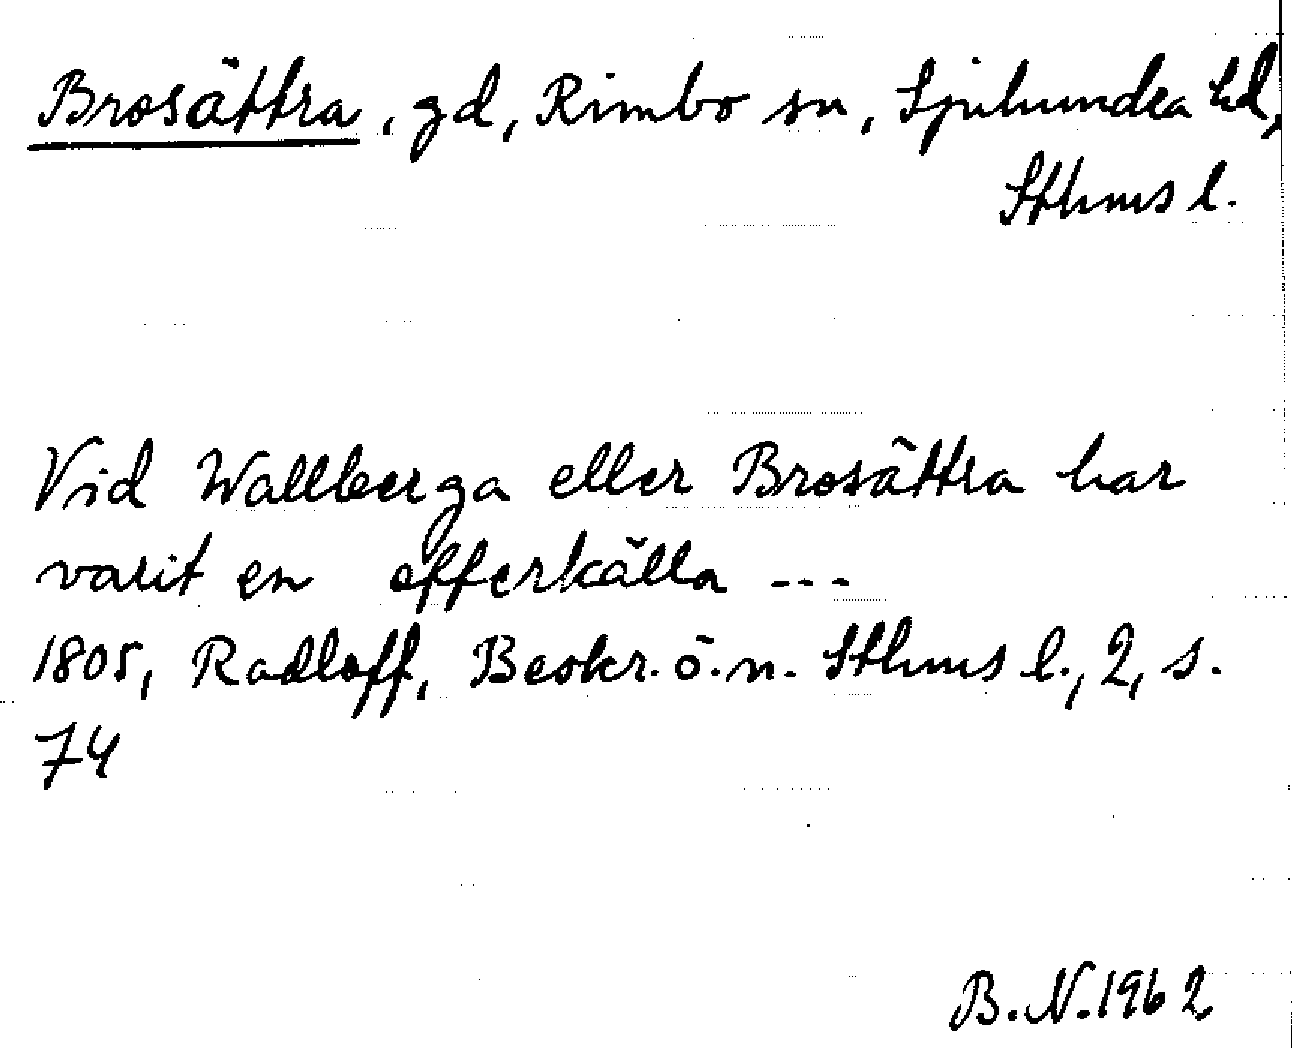 Brosättra, gd, Rimbo sn, Sjuhundra hd,
Sthms l.
Vid Wallberga eller Brosättra har
varit en offerkälla ---
1805, Radloff, Beskr. ö. n. Sthms l., 2, s.
74
B.N. 1962